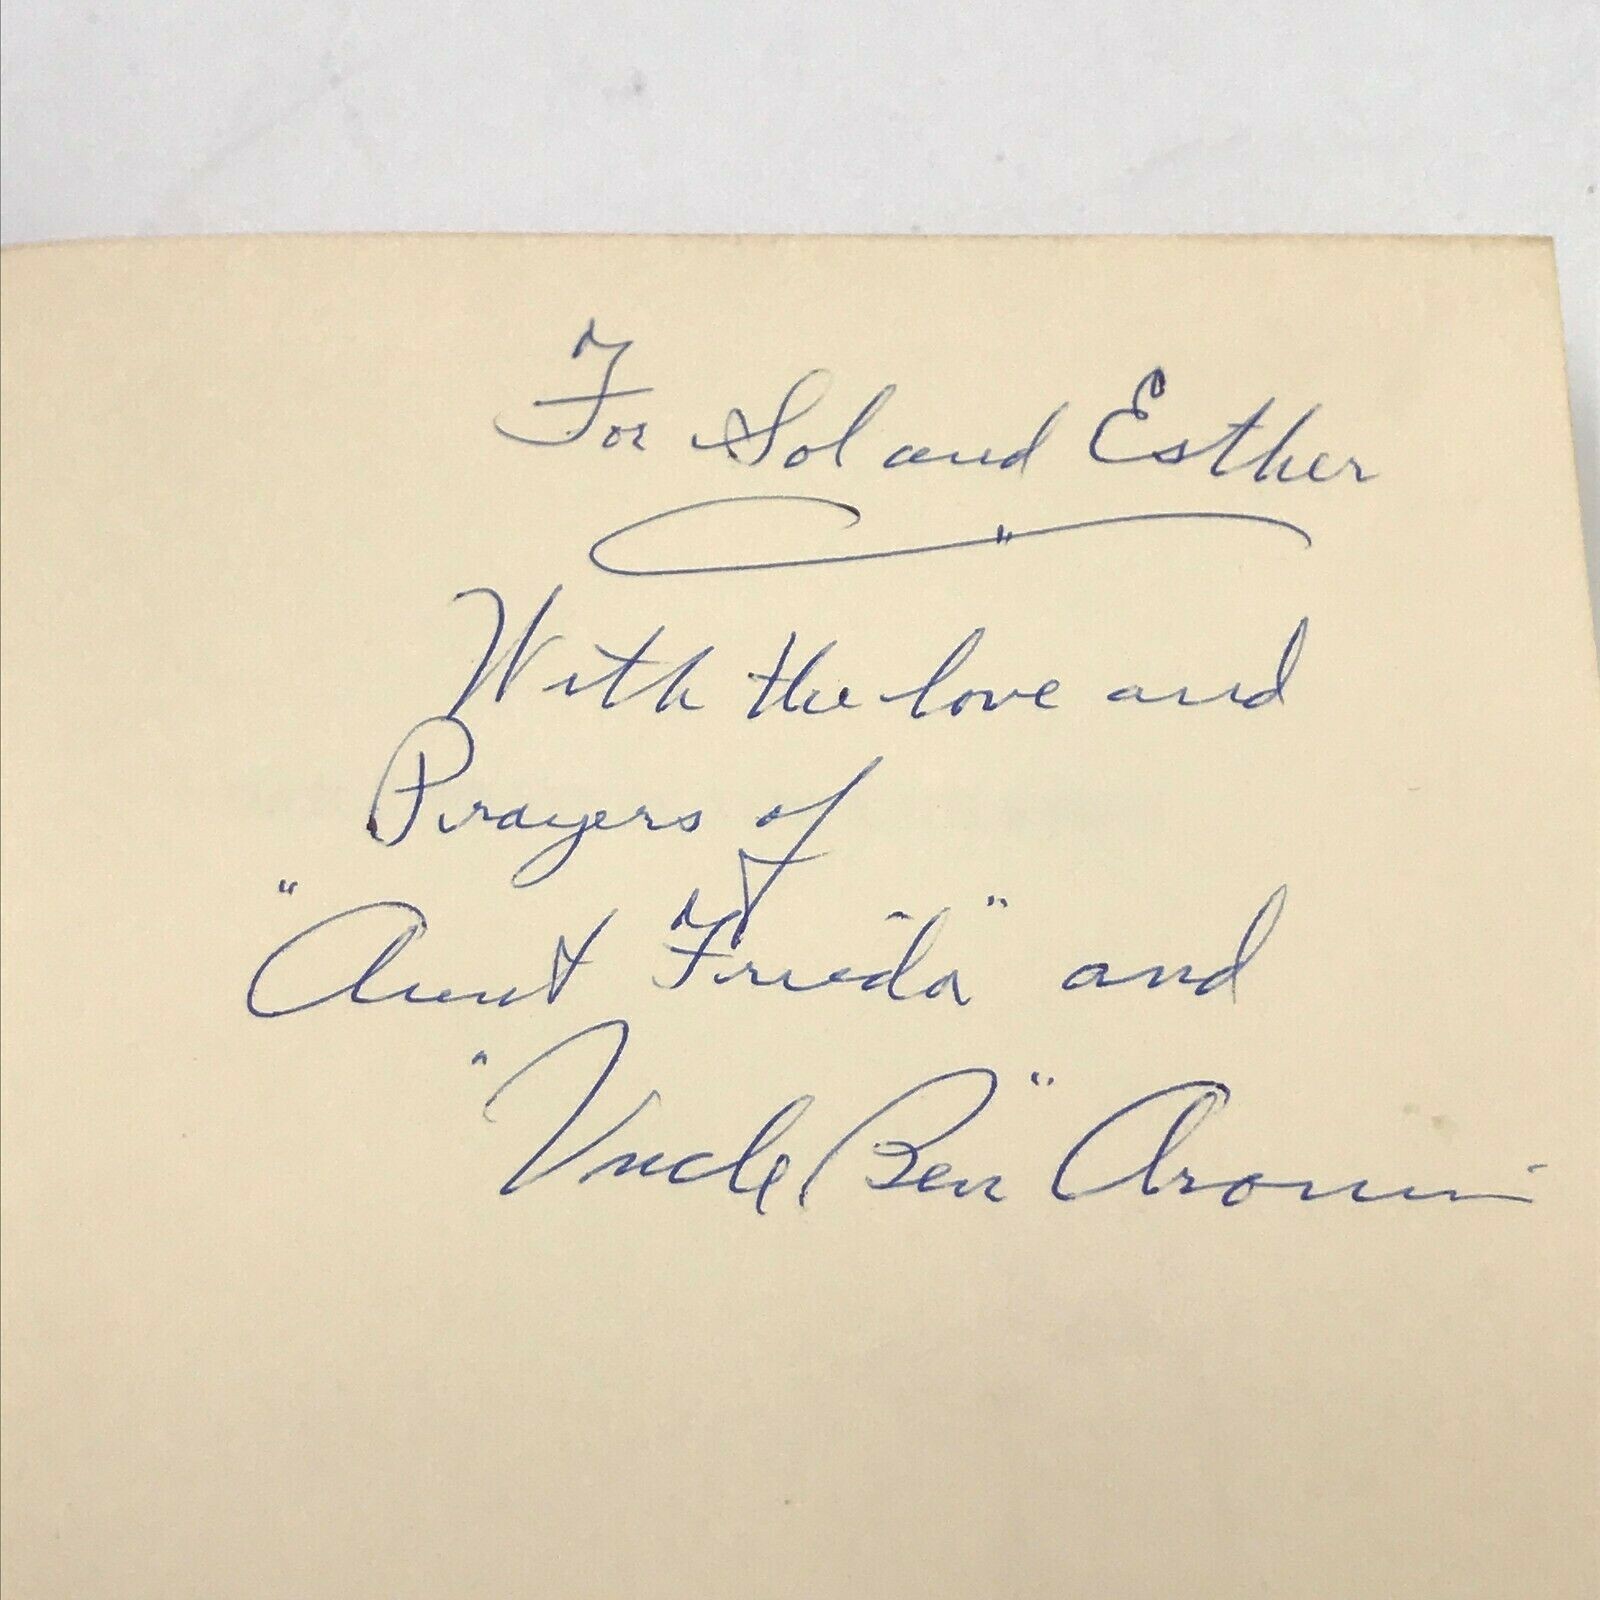 For Sol and Esther
With the love and
Prayers of
"Aunt Frieda" and
"Uncle Ben" Aronin